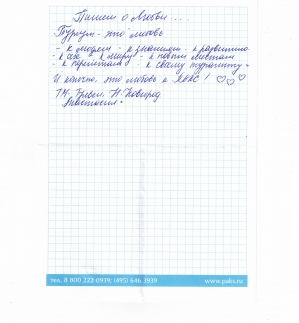 Пишем о любви ...
Туризм - это любовь
- к людям - к знаниям - к развитию
- к еде - к миру - к новым местам
- к перелетам - к своему турагенту
И конечно, это любовь к ПАКС! ♡♡♡
ТК Тревел, Н. Новгород
Анастасия
тел. 8 800 222 0939; (495) 646 3939
www.paks.ru